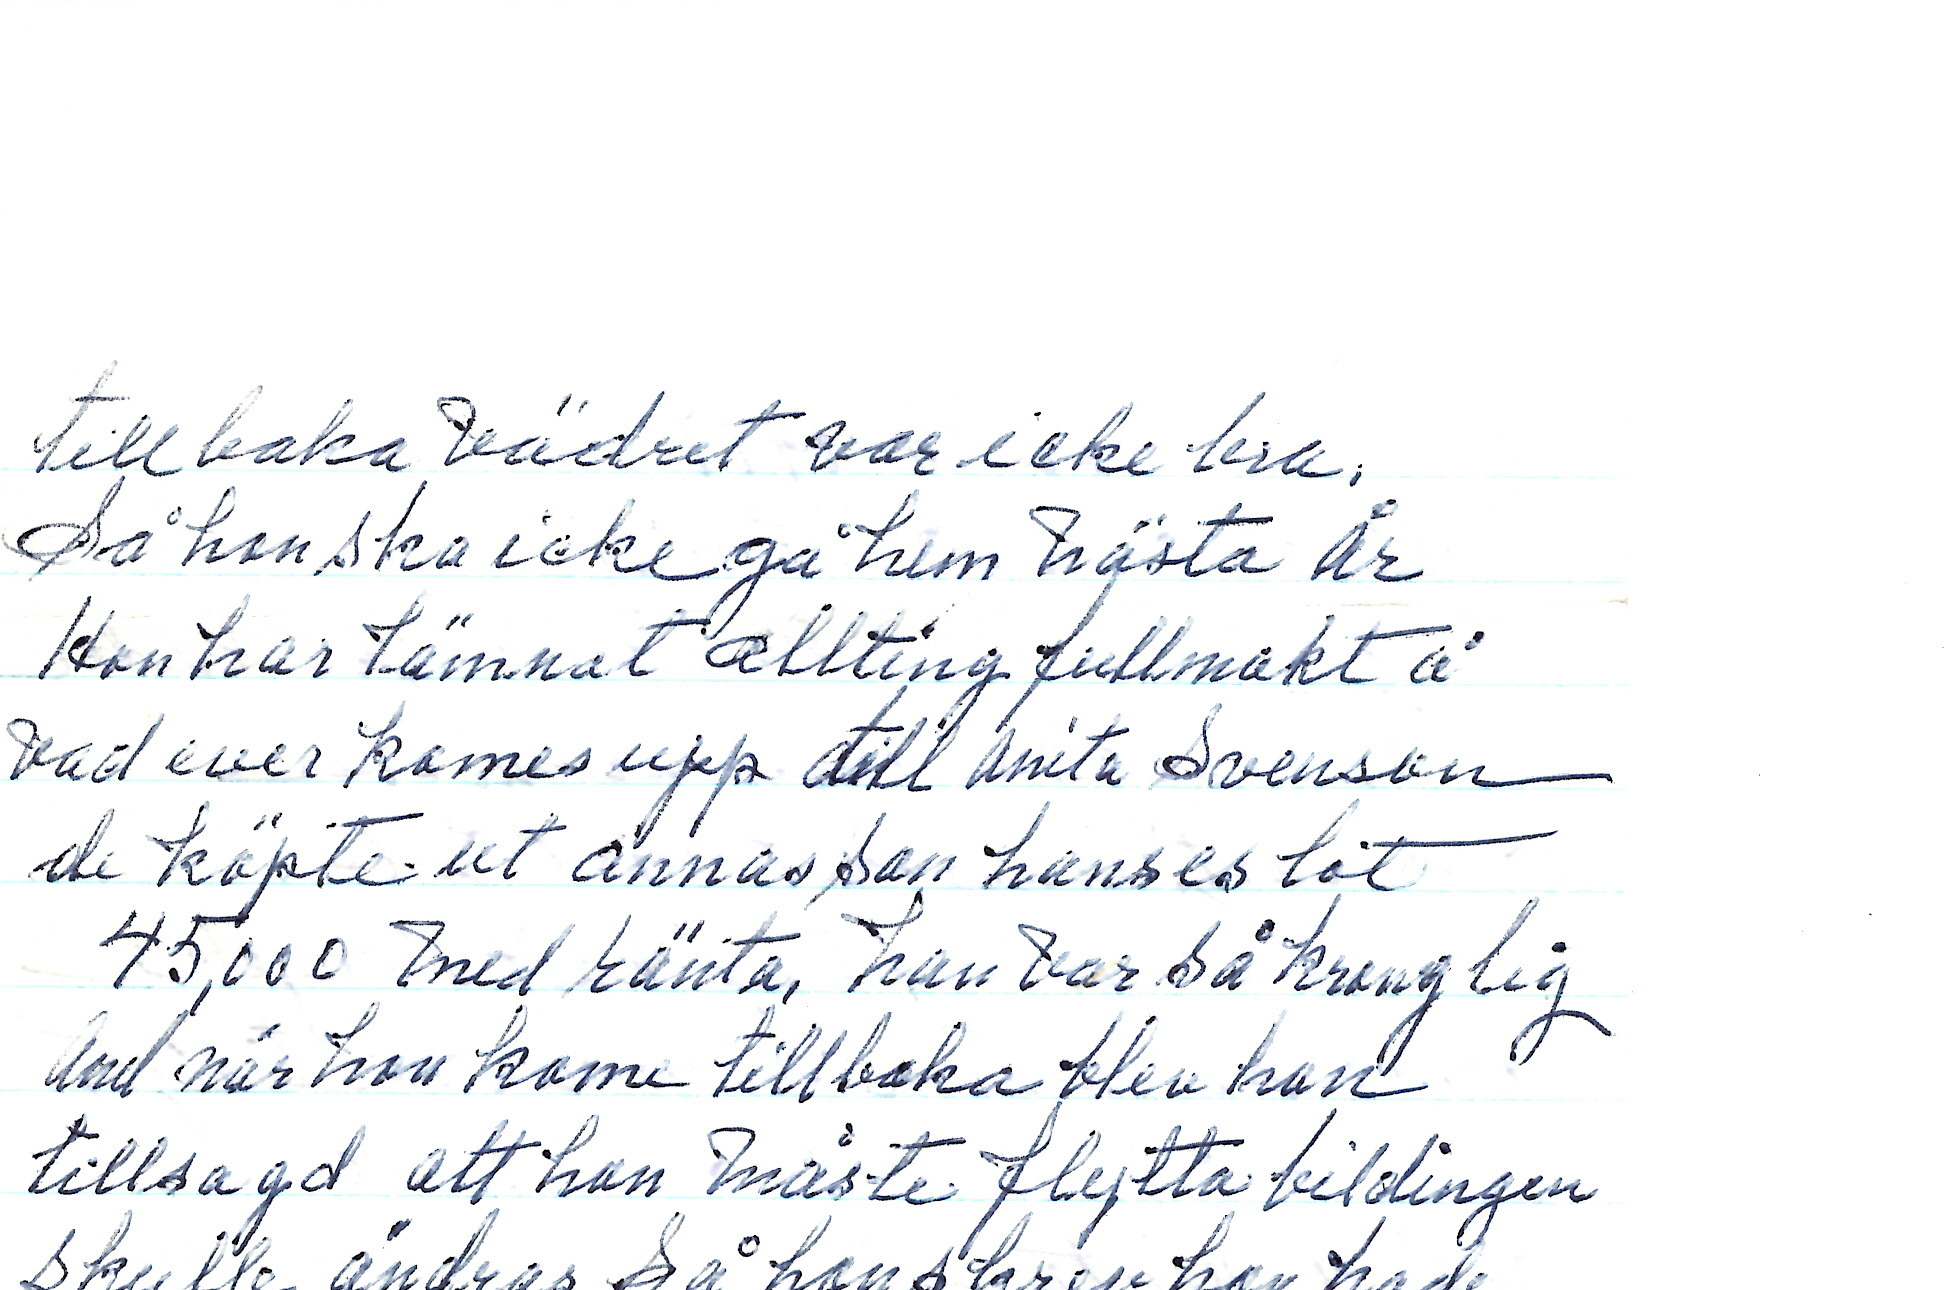 tillbaka vädret var icke bra.
Så hon ska icke gå hem nästa År
Hon har lämnat allting fullmakt å
vad ever komes upp till Anita Svenson
de köpte ut Annas son hanses lot
45,000 med ränta, han var så kronglig
And när hon kome tillbaka blev hon
tillsagd att hon måste flytta bildingen
skulle ändras Så hon skrev hon hade